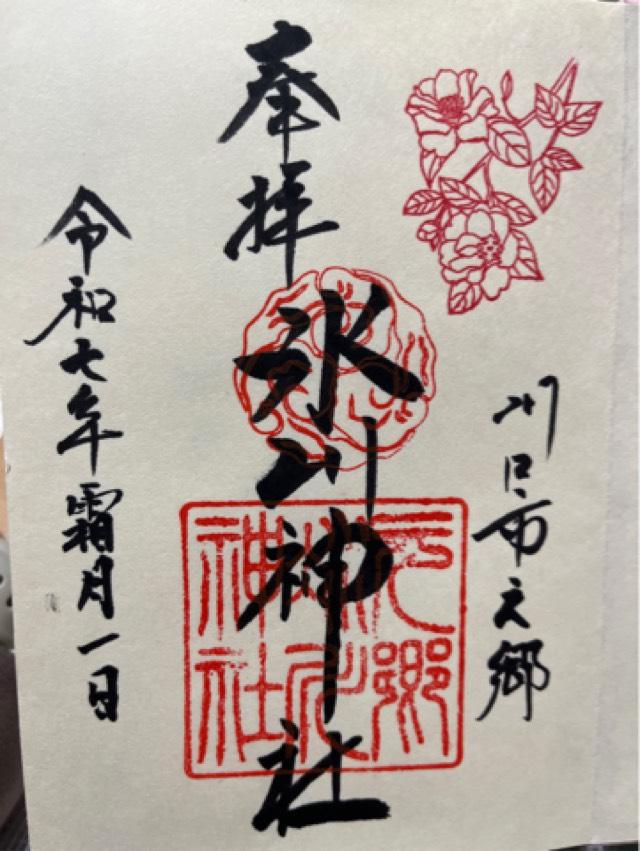 川口市元郷
奉拝
氷川神社
元郷
氷川
神社
令和七年霜月一日